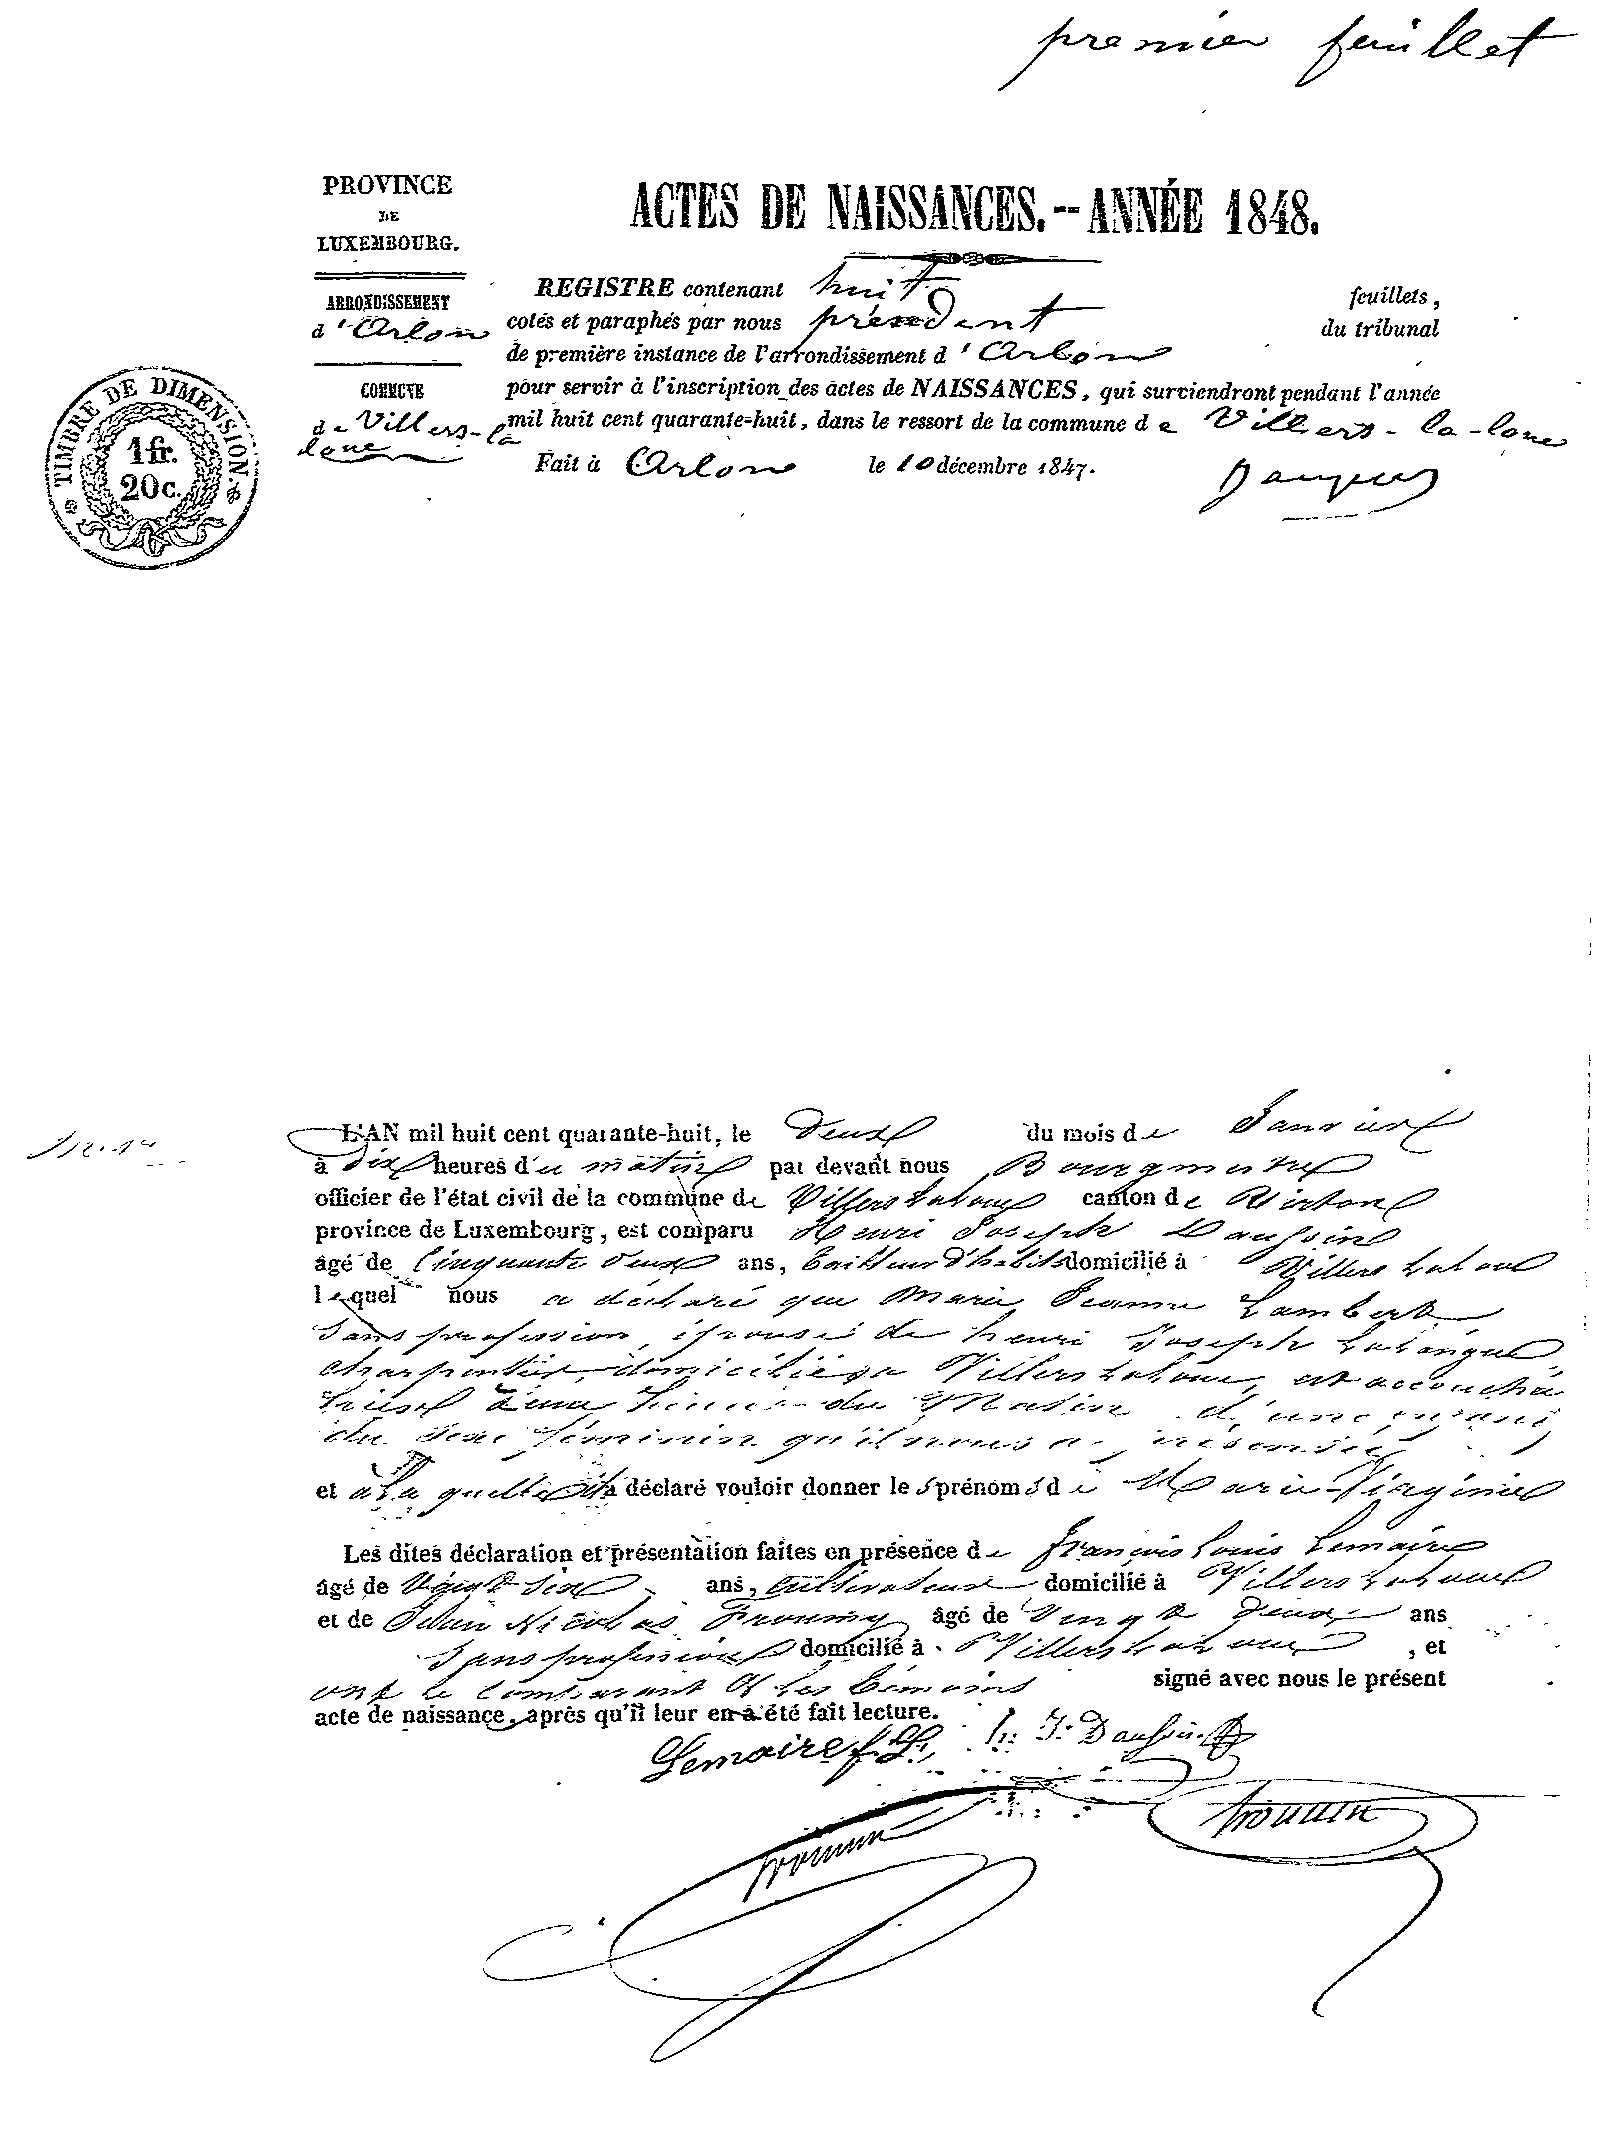 premier feuillet
PROVINCE
DE
LUXEMBOURG.
ARRONDISSEMENT
d'Arlon
COMMUNE
de Villers-la
loue
TIMBRE DE DIMENSION.
1 fr.
20c.
ACTES DE NAISSANCES.--ANNÉE 1848.
REGISTRE contenant huit feuillets,
cotés et paraphés par nous président du tribunal
de première instance de l'arrondissement d'Arlon
pour servir à l'inscription des actes de NAISSANCES, qui surviendront pendant l'année
mil huit cent quarante-huit, dans le ressort de la commune de Villers-la-loue
Fait à Arlon le 10 décembre 1847.
L'AN mil huit cent quarante-huit, le deux du mois de Janvier
à dix heures du matin par devant nous Bourgmestre
officier de l'état civil de la commune de Villers Laloue canton de Virton
province de Luxembourg, est comparu Henri Joseph Daussin
âgé de Cinquante deux ans, tailleur d'habits domicilié à Villers Laloue
lequel nous a déclaré que Marie Jeanne Lambert
sans profession, épouse de henri Joseph
charpentier, domicilié a Villers Laloue, est accouchée
du Matin d'une enfant
du sexe féminin qu'il nous a présenté
et à la quelle il a déclaré vouloir donner les prénoms de Marie Virginie
Les dites déclaration et présentation faites en présence de françois Louis Lemaire
âgé de Vingt six ans, cultivateur domicilié à Villers Laloue
et de Jean Nicolas âgé de Vingt deux ans
Sans profession domicilié à Villers Laloue, et
ont le Comparant et les témoins signé avec nous le présent
acte de naissance, après qu'il leur en a été fait lecture.
Lemaire f. L. h. J. Daussin